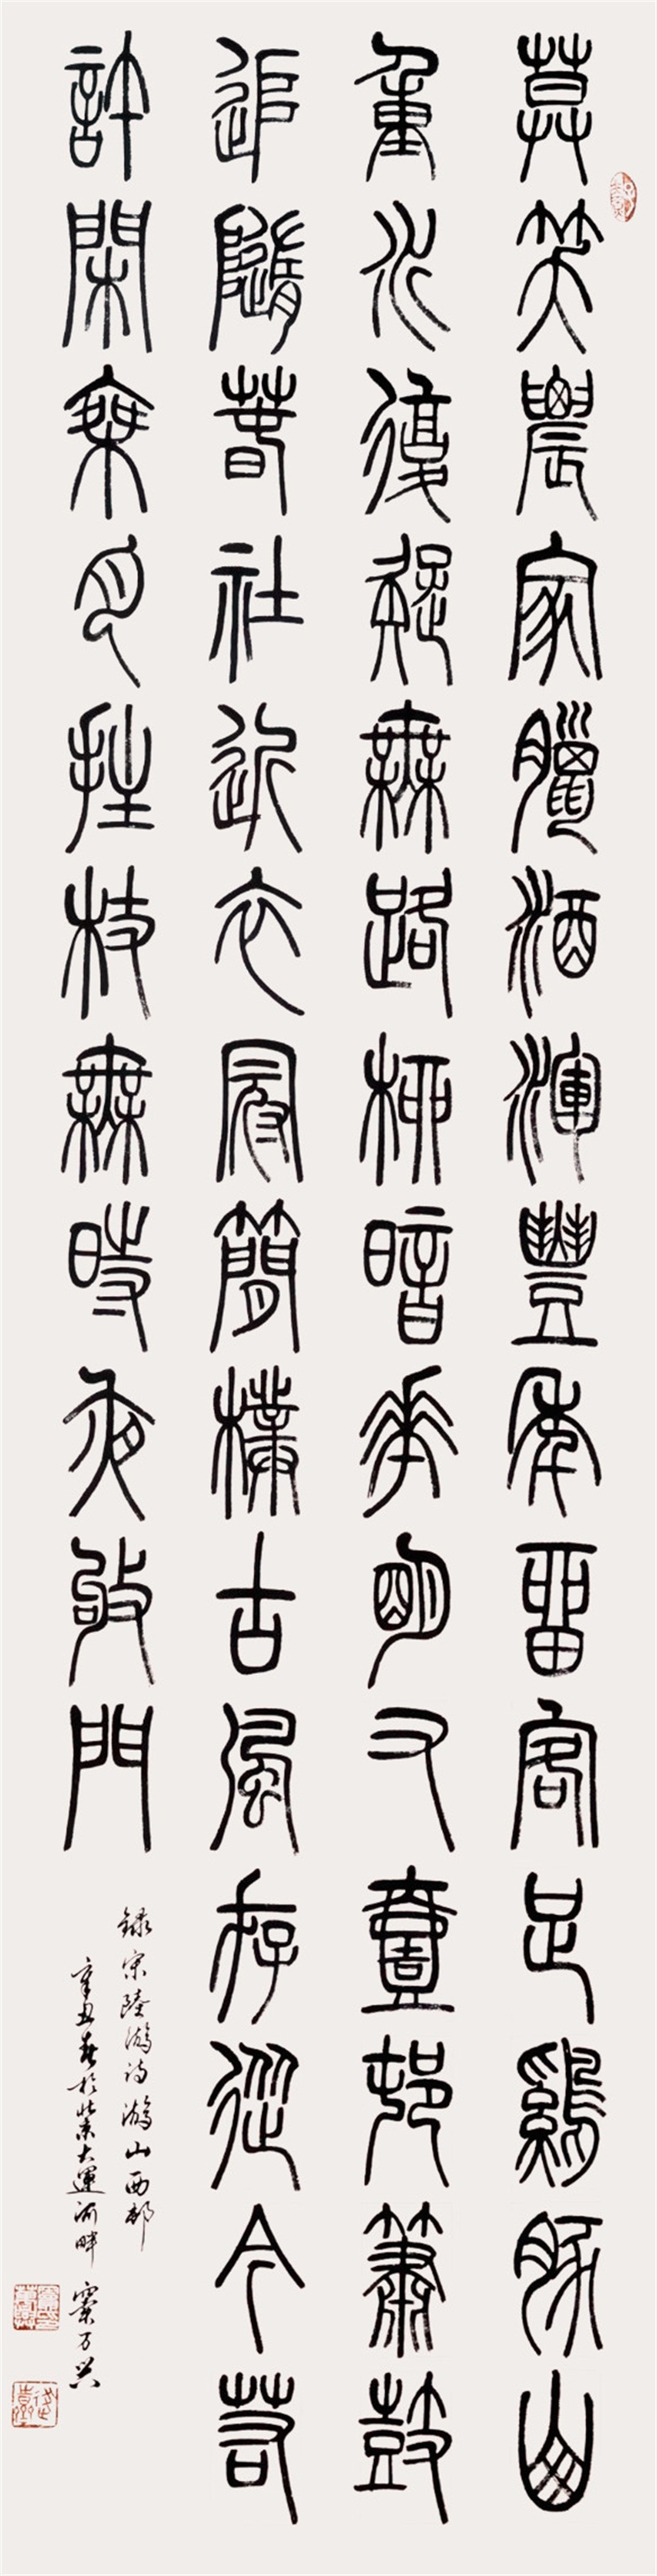 莫笑農家臘酒渾豐年留客足鷄豚山
重水復疑無路柳暗花明又壹邨簫鼓
追隨春社近衣冠簡樸古風存從今若
許閑乘月拄杖無時夜敲門
錄宋陸游詩游山西邨
辛丑春於北京大運河畔 万兴